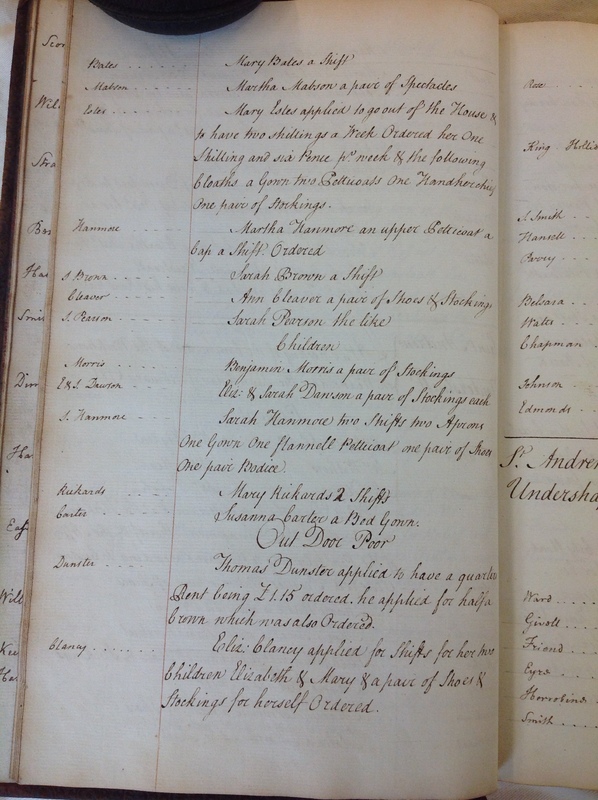 Scor
Bales Mary Bales a Shift
Mabson Martha Mabson a pair of Spectacles
Wil
Esles Mary Esles applied to go out of the House &
to have two shillings a Week Ordered her One
Shilling and six Pence pr week & the following
Stra
Cloaths a Gown two Petticoats One Handkerchief
One pair of Stockings.
Hanmore Martha Hanmore an upper Petticoat a
Cap a Shift. Ordered
Ha
S. Brown Sarah Brown a Shift
Cleaver Ann Cleaver a pair of Shoes & Stockings
Smi
S. Pearson Sarah Pearson the like
Children
Morris Benjamin Morris a pair of Stockings
E & S. Dawson Eliz: & Sarah Dawson a pair of Stockings each
S. Hanmore Sarah Hanmore two Shifts two Aprons
One Gown One flannell Petticoat one pair of Shoes
One pair Bodice.
Rickards Mary Rickards 2 Shifts
Carter Susanna Carter a Bed Gown.
Out Door Poor
Dunster Thomas Dunster applied to have a quarters
Rent being £1.15 ordered. he applied for half a
Crown which was also Ordered.
Will
Clancy Eliz: Clancy applied for Shifts for her two
Children Elizabeth & Mary & a pair of Shoes &
Stockings for herself Ordered.
Roe
King Holli
S. Smith
Hansell
Povey
Belvara
Wates
Chapman
Johnson
Edmonds
St. Andrew
Undersha
Ward
Givott
Friend
Eyre
Smith